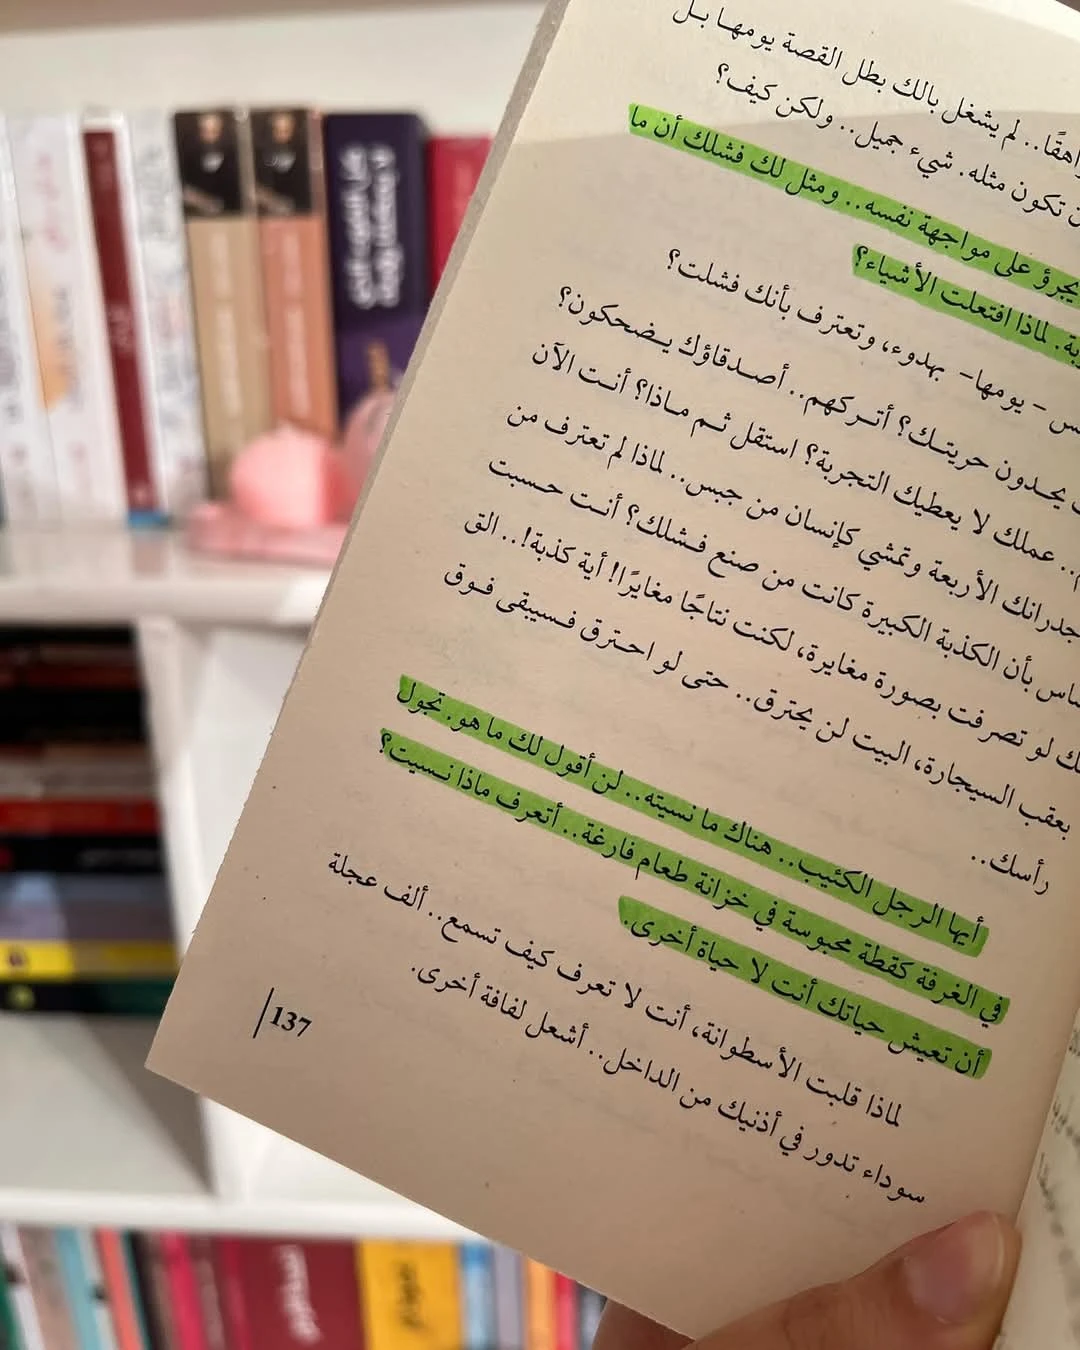 لم يشغل بالك بطل القصة يومها بل
تكون مثله. شيء جميل.. ولكن كيف؟
يجرؤ على مواجهة نفسه.. ومثل لك فشلك أن ما
لماذا افتعلت الأشياء؟
- يومها- بهدوء، وتعترف بأنك فشلت؟
يحدون حريتك؟ أتركهم.. أصدقاؤك يضحكون؟
عملك لا يعطيك التجربة؟ استقل ثم ماذا؟ أنت الآن
جدرانك الأربعة وتمشي كإنسان من جبس.. لماذا لم تعترف من
بأن الكذبة الكبيرة كانت من صنع فشلك؟ أنت حسبت
لو تصرفت بصورة مغايرة، لكنت نتاجًا مغايرًا! أية كذبة!.. الق
بعقب السيجارة، البيت لن يحترق.. حتى لو احترق فسيبقى فوق
رأسك..
أيها الرجل الكئيب.. هناك ما نسيته.. لن أقول لك ما هو. تجول
في الغرفة كقطة محبوسة في خزانة طعام فارغة.. أتعرف ماذا نسيت؟
أن تعيش حياتك أنت لا حياة أخرى.
لماذا قلبت الأسطوانة، أنت لا تعرف كيف تسمع.. ألف عجلة
سوداء تدور في أذنيك من الداخل.. أشعل لفافة أخرى.
137